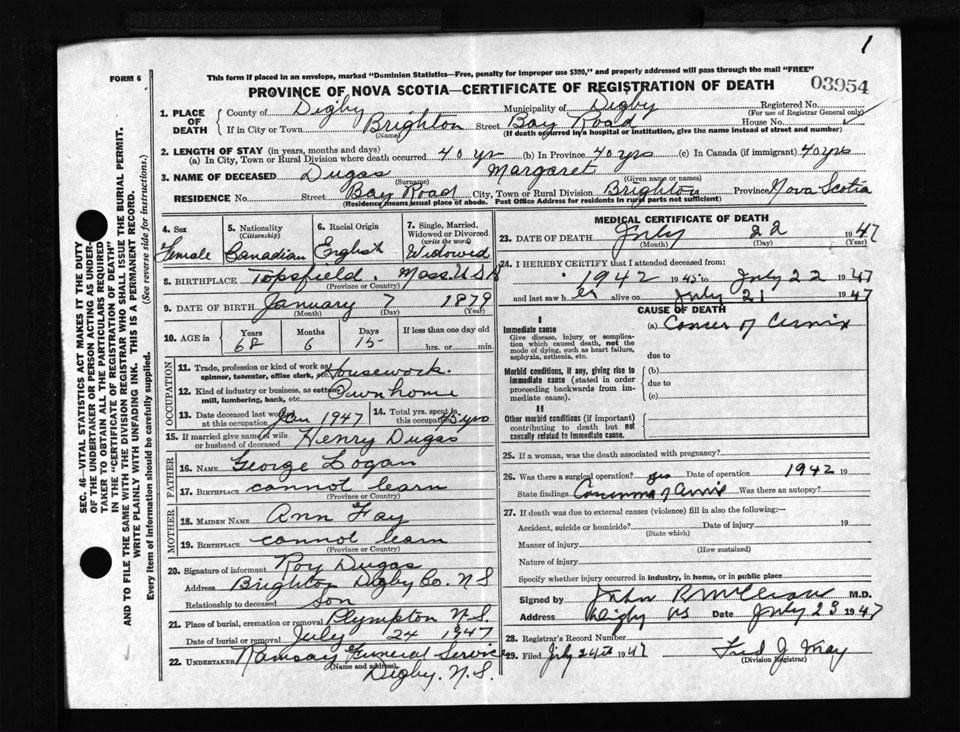 1
FORM 6
This form if placed in an envelope, marked "Dominion Statistics—Free, penalty for improper use $300," and properly addressed will pass through the mail "FREE"
03954
PROVINCE OF NOVA SCOTIA—CERTIFICATE OF REGISTRATION OF DEATH
1. PLACE OF DEATH
County of Digby Municipality of Digby Registered No.
(For use of Registrar General only)
If in City or Town Brighton Street Bay Road House No.
(Name) (If death occurred in a hospital or institution, give the name instead of street and number)
2. LENGTH OF STAY (in years, months and days)
(a) In City, Town or Rural Division where death occurred 40 yr (b) In Province 40 yrs (c) In Canada (if immigrant) 40 yrs
3. NAME OF DECEASED Dugas Margaret
(Surname) (Given name or names)
RESIDENCE No. Street Bay Road City, Town or Rural Division Brighton Province Nova Scotia
(Residence means usual place of abode. Post Office Address for residents in rural parts not sufficient)
4. Sex
Female
5. Nationality
(Citizenship)
Canadian
6. Racial Origin
English
7. Single, Married, Widowed or Divorced
(write the word)
Widowed
8. BIRTHPLACE Topsfield. Mass. U.S.A
(Province or Country)
9. DATE OF BIRTH January 7 1879
(Month) (Day) (Year)
10. AGE in
Years Months Days If less than one day old
68 6 15 hrs. or min.
OCCUPATION
11. Trade, profession or kind of work as spinner, teamster, office clerk, etc. Housework.
12. Kind of industry or business, as cotton mill, lumbering, bank, etc. Own home
13. Date deceased last worked at this occupation Jan 1947
14. Total yrs. spent in this occupation 45 yrs
15. If married give name of wife or husband of deceased Henry Dugas
FATHER
16. NAME George Logan
17. BIRTHPLACE cannot learn
(Province or Country)
MOTHER
18. MAIDEN NAME Ann Fay
19. BIRTHPLACE cannot learn
(Province or Country)
20. Signature of informant Roy Dugas
Address Brighton Digby Co. N S
Relationship to deceased son
21. Place of burial, cremation or removal Plympton N.S.
Date of burial or removal July 24 1947
22. UNDERTAKER Ramsay Funeral Service
(Name and address)
Digby. N.S.
MEDICAL CERTIFICATE OF DEATH
23. DATE OF DEATH July 22 1947
(Month) (Day) (Year)
24. I HEREBY CERTIFY that I attended deceased from:
1942 to July 22 1947
and last saw her alive on July 21 1947
CAUSE OF DEATH
I
Immediate cause
Give disease, injury or complication which caused death, not the mode of dying, such as heart failure, asphyxia, asthenia, etc.
(a) Cancer of Cervix
due to
Morbid conditions, if any, giving rise to immediate cause (stated in order proceeding backwards from immediate cause).
(b)
due to
(c)
II
Other morbid conditions (if important) contributing to death but not causally related to immediate cause.
25. If a woman, was the death associated with pregnancy?
26. Was there a surgical operation? yes Date of operation 1942 19
State findings Carcinoma of Cervix Was there an autopsy?
27. If death was due to external causes (violence) fill in also the following:—
Accident, suicide or homicide? Date of injury 19
(State which)
Manner of injury
(How sustained)
Nature of injury
Specify whether injury occurred in industry, in home, or in public place
Signed by John R M.D.
Address Digby NS Date July 23 1947
28. Registrar's Record Number
29. Filed July 24th 1947 Fred J. May
(Division Registrar)
SEC. 46—VITAL STATISTICS ACT MAKES IT THE DUTY
OF THE UNDERTAKER OR PERSON ACTING AS UNDERTAKER
TO OBTAIN ALL THE PARTICULARS REQUIRED
IN THE "CERTIFICATE OF REGISTRATION OF DEATH"
AND TO FILE THE SAME WITH THE DIVISION REGISTRAR WHO SHALL ISSUE THE BURIAL PERMIT.
WRITE PLAINLY WITH UNFADING INK. THIS IS A PERMANENT RECORD.
Every item of information should be carefully supplied. (See reverse side for instructions.)